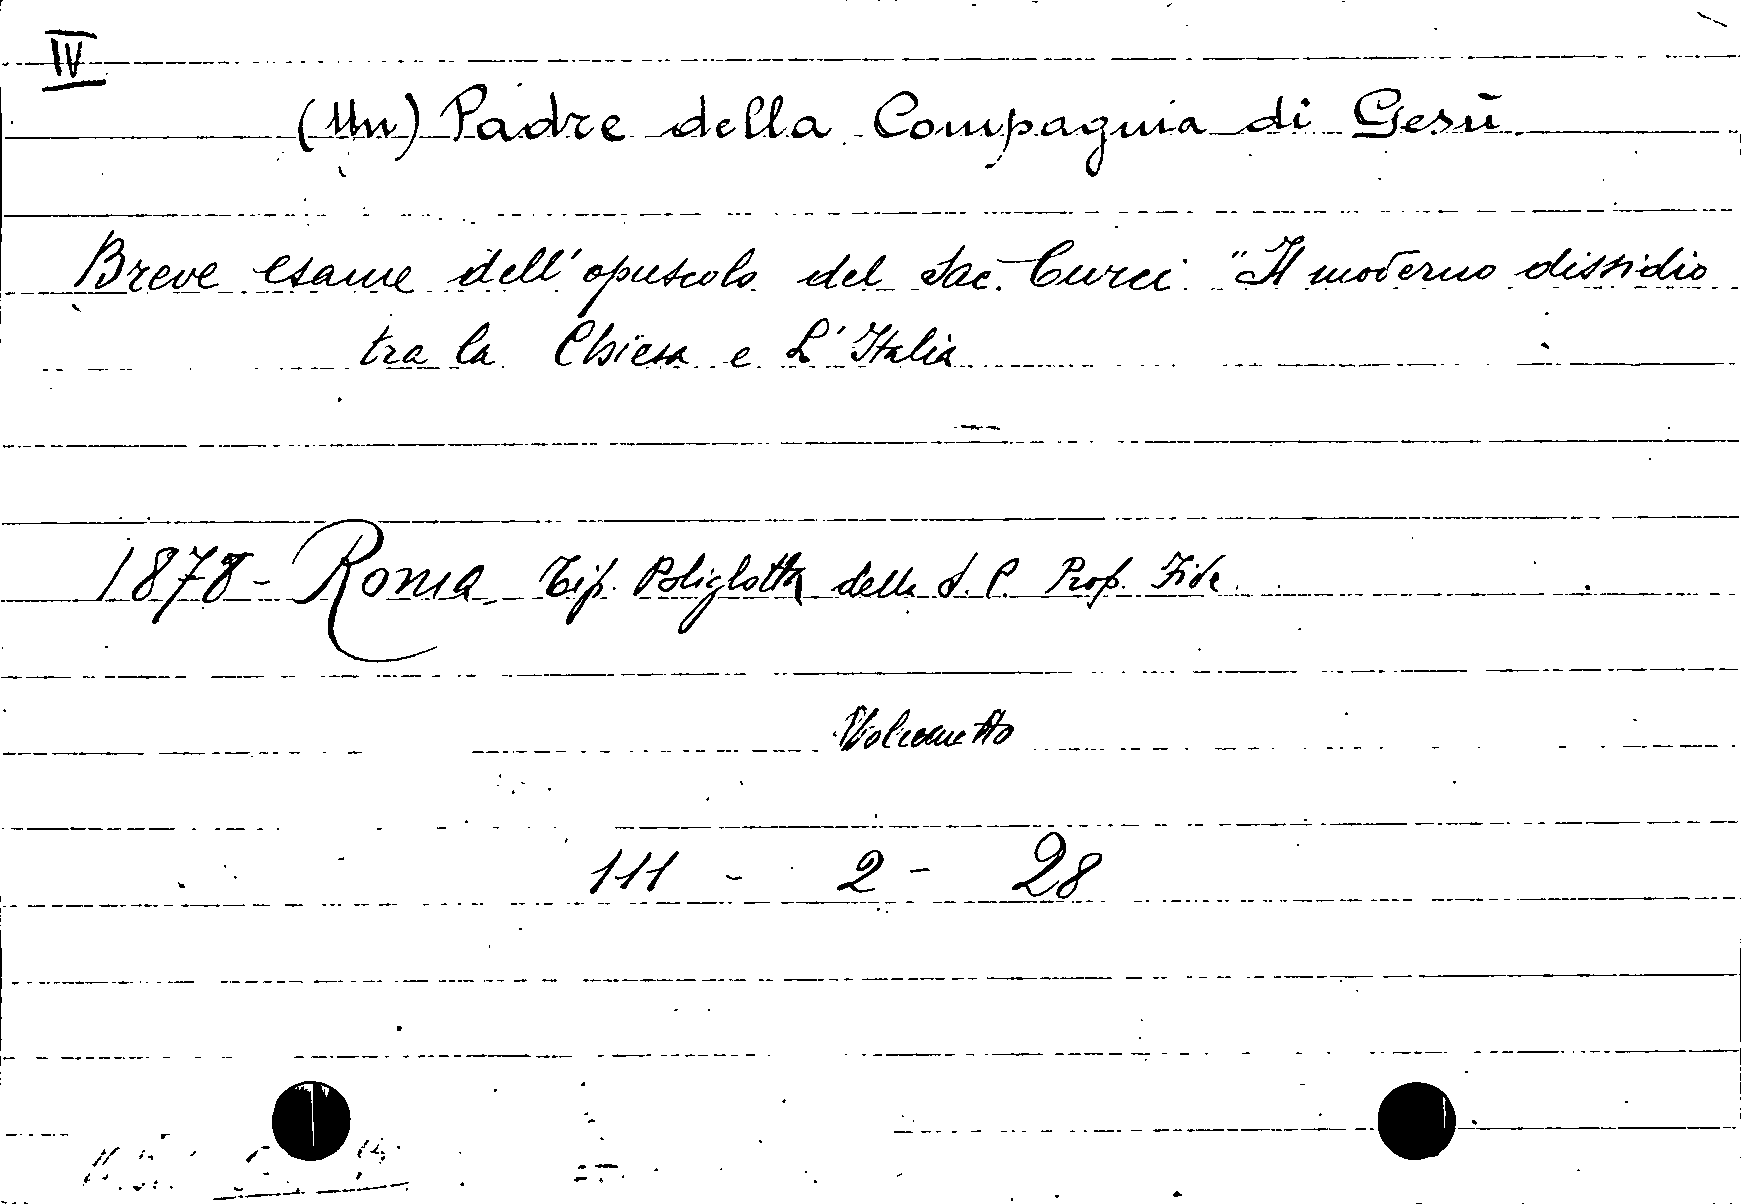 IV
(Un) Padre della Compagnia di Gesù
Breve esame dell'opuscolo del Sac. Curci "Il moderno dissidio
tra la Chiesa e L'Italia
1878 - Roma Tip. Poliglotta della S. C. Prop. Fide
Volumetto
111 - 2 - 28